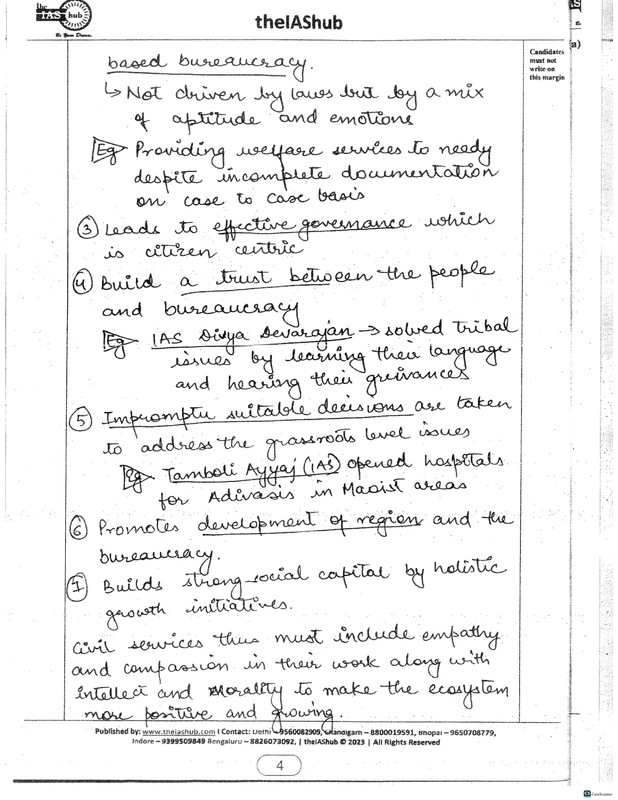 the
IAS hub
Be Your Dream
theIAShub
Candidates
must not
write on
this margin
based bureaucracy.
↳ Not driven by laws but by a mix
of aptitude and emotions
Eg Providing welfare services to needy
despite incomplete documentation
on case to case basis
③ Leads to effective governance which
is citizen centric
④ Build a trust between the people
and bureaucracy
Eg IAS Divya Devarajan → solved tribal
issues by learning their language
and hearing their greivances
⑤ Impromptu suitable decisions are taken
to address the grassroots level issues
Eg Tamboli Ayyaj (IAS) opened hospitals
for Adivasis in Maoist areas
⑥ Promotes development of region and the
bureaucracy.
⑦ Builds strong social capital by holistic
growth initiatives.
Civil services thus must include empathy
and compassion in their work along with
intellect and morality to make the ecosystem
more positive and growing.
Published by: www.theiashub.com I Contact: Delhi – 9560082909, Chandigarh – 8800019591, Bhopal – 9650708779,
Indore – 9399509849 Bengaluru – 8826073092, | theIAShub © 2023 | All Rights Reserved
4
CamScanner